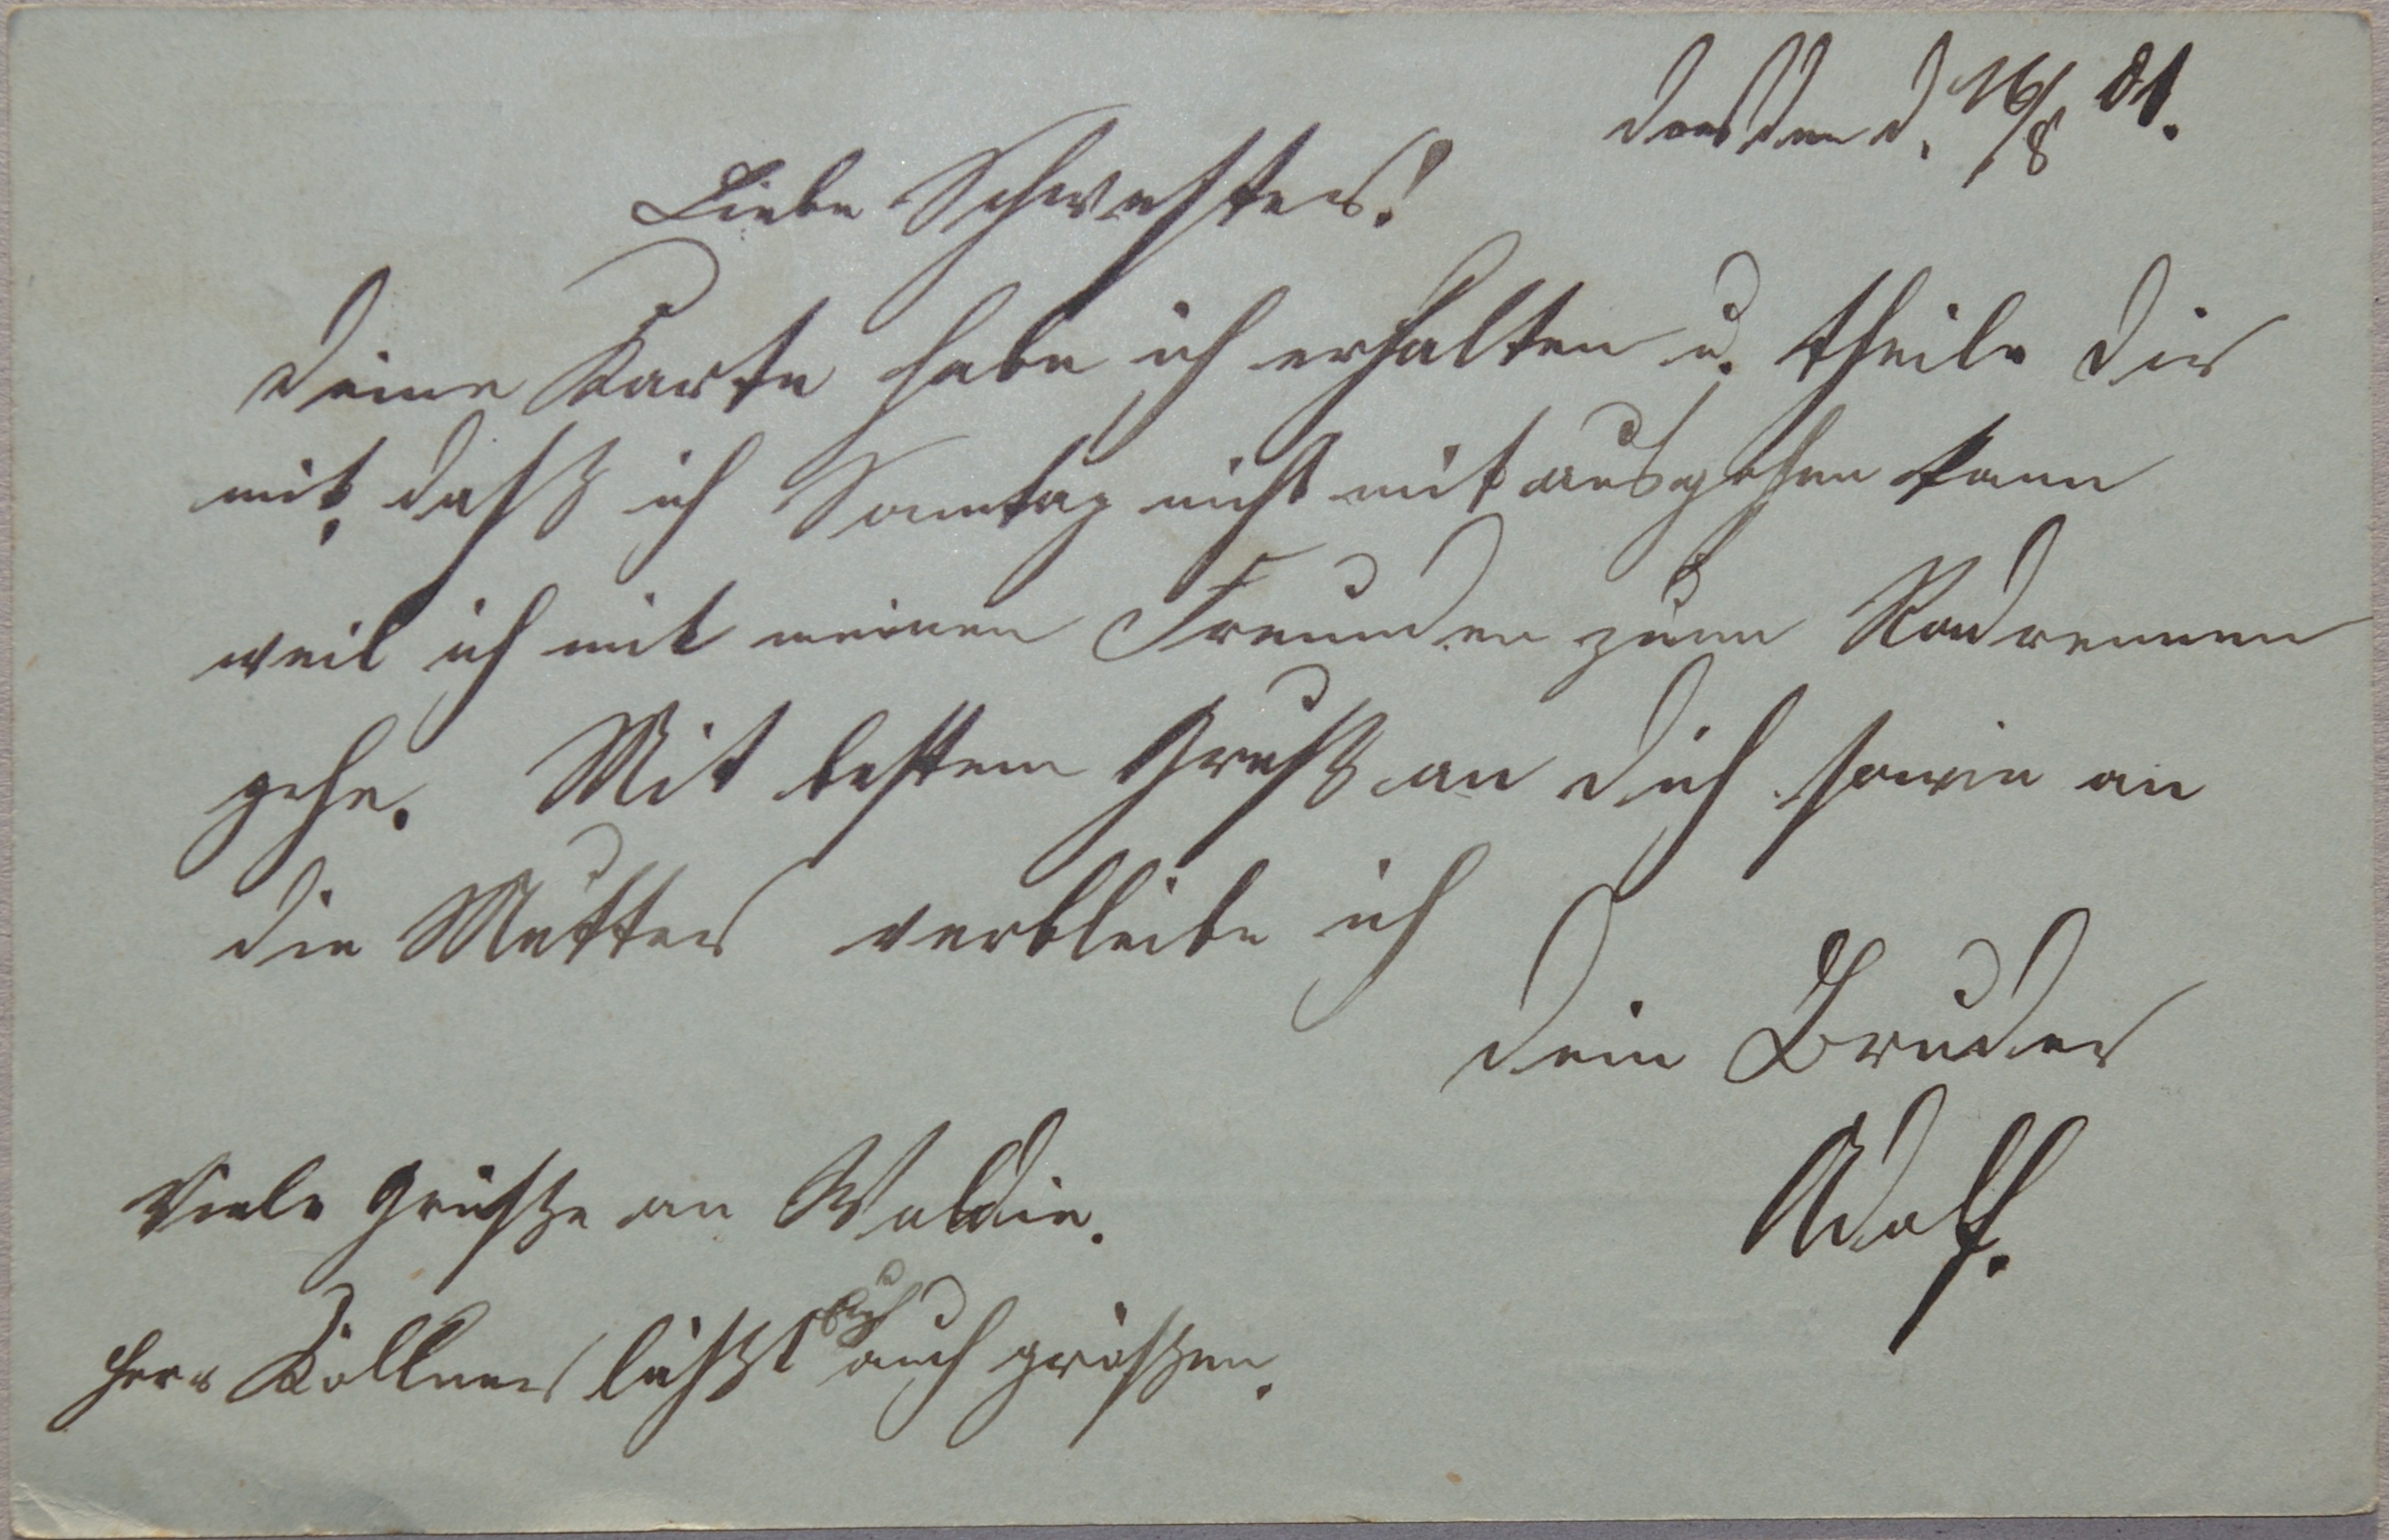 Dresden d. 16/8 01.
Liebe Schwester!
Deine Karte habe ich erhalten u. theile Dir
mit, daß ich Sonntag nicht mit ausgehen kann
weil ich mit meinen Freunden zum Radrennen
gehe. Mit bestem Gruß an Dich sowie an
die Mutter verbleibe ich
Dein Bruder
Adolf.
Viele Grüße an Waldin.
Herr Köllner läßt Euch auch grüßen.